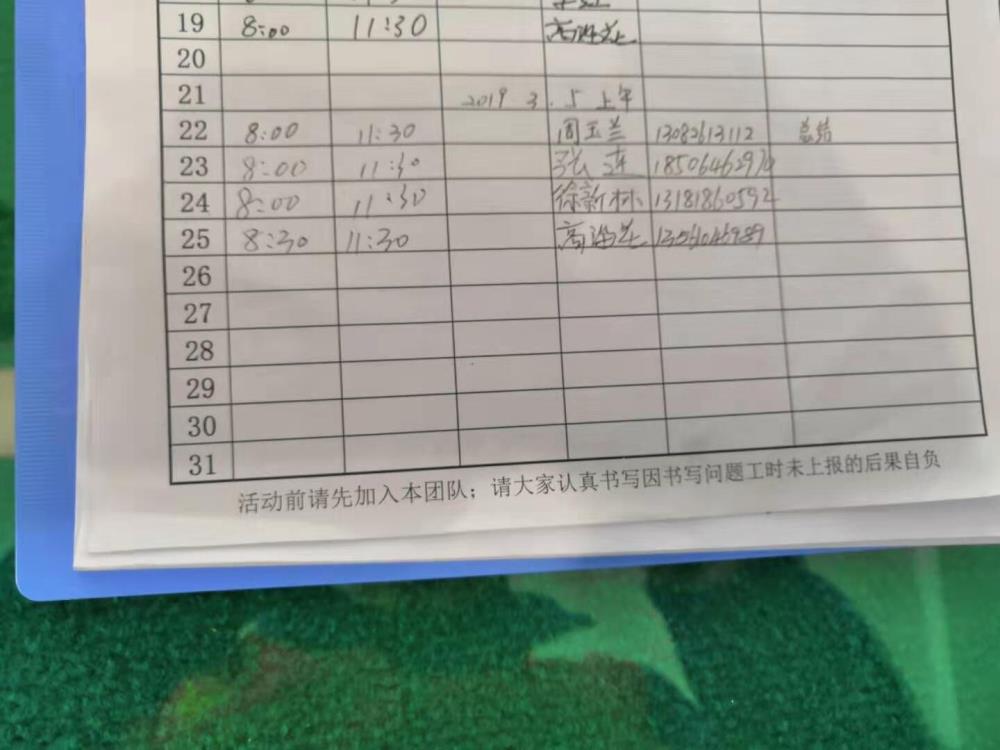 19 8:00 11:30
20
21 2019 3.5 上午
22 8:00 11:30 周玉兰 13082613112 总结
23 8:00 11:30 张莲
24 8:00 11:30 徐新林 13181860592
25 8:30 11:30 13561046989
26
27
28
29
30
31
活动前请先加入本团队；请大家认真书写因书写问题工时未上报的后果自负